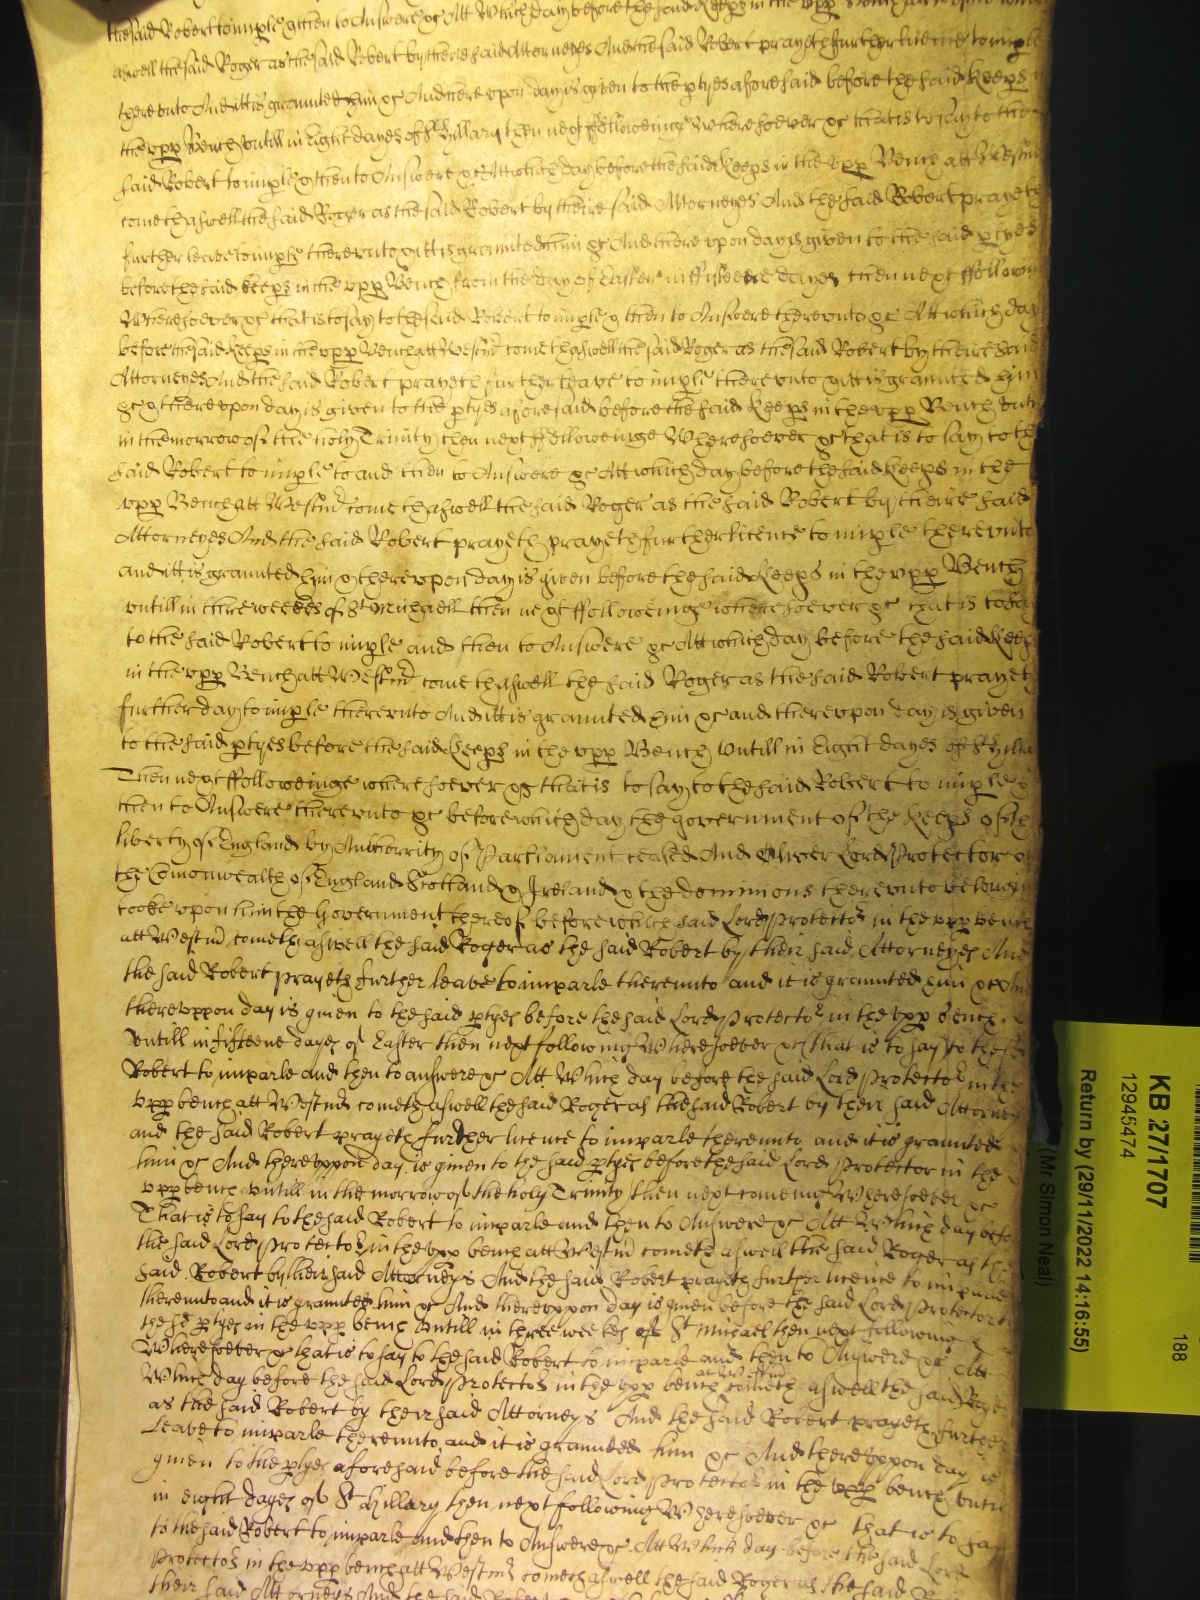 the said Robert to imple & then to Answere &c Att Which day before the said Keeps in the upp Bench
aswell the said Roger as the said Robert by theire said Attorneyes And the said Robert prayeth further licence to imple
there unto And itt is graunted him &c And there upon day is given to the ptyes aforesaid before the said Keeps
the upp Bench untill in Eight dayes of St Hillary then next ffolloweinge Wheresoever &c that is to say to the
said Robert to imple & then to Answere &c Att which day before the said Keeps in the upp Bench att Westmr
cometh aswell the said Roger as the said Robert by theire said Attorneyes And the said Robert prayeth
further leave to imple there unto & itt is graunted him &c And there upon day is given to the said ptyes
before the said keeps in the upp Bench from the day of Easter in ffifteene dayes then next ffollowing
Wheresoever &c that is to say to the said Robert to imple & then to Answere there unto &c Att which day
before the said keeps in the upp Bench att Westmr cometh aswell the said Roger as the said Robert by theire said
Attorneyes And the said Robert prayeth further leave to imple there unto & itt is graunted him
&c & there upon day is given to the ptyes aforesaid before the said Keeps in the upp Bench untill
in the morrow of the holy Trinity then next ffolloweinge Wheresoever &c that is to say to the
said Robert to imple to and then to Answere &c Att which day before the said Keeps in the
upp Bench att Westmr cometh aswell the said Roger as the said Robert by theire said
Attorneyes And the said Robert prayeth prayeth further licence to imple there unto
and itt is graunted him & there upon day is given before the said Keeps in the upp Bench
untill in three weekes of St Michaell then next ffolloweinge wheresoever &c that is to say
to the said Robert to imple and then to Answere &c Att which day before the said Keeps
in the upp Bench att Westmr cometh aswell the said Roger as the said Robert prayeth
further day to imple there unto And itt is graunted him &c and there upon day is given
to the said ptyes before the said Keeps in the upp Bench Untill in Eight dayes of St Hilla
Then next ffolloweinge wheresoever &c that is to say to the said Robert to imple &
then to Answere there unto &c before which day the government of the Keeps of the
liberty of England by Authorrity of Parliament ceased And Oliver Lord Protector of
the Comonwealth of England Scotland & Ireland & the dominions thereunto belonging
tooke upon him the Government thereof before which said Lord Protector in the upp bench
att Westmr cometh aswell the said Roger as the said Robert by their said Attorneyes And
the said Robert prayeth further leave to imparle thereunto and it is graunted him &c And
thereuppon day is given to the said ptyes before the said Lord Protector in the upp bench
Untill in fifteene dayes of Easter then next following Wheresoever &c that is to say to the said
Robert to imparle and then to answere &c Att Which day before the said Lord Protector in the
upp bench att Westmr cometh aswell the said Roger as the said Robert by their said Attorneys
and the said Robert prayeth further licence to imparle thereunto and it is graunted
him &c And thereuppon day is given to the said ptyes before the said Lord Protector in the
upp bench untill in the morrow of the holy Trinity then next comeing Wheresoever &c
That is to say to the said Robert to imparle and then to Answere &c Att Which day before
the said Lord Protector in the upp bench att Westmr cometh aswell the said Roger as the
said Robert by their said Attorneys And the said Robert prayeth further licence to imparle
thereunto and it is graunted him &c And thereuppon day is given before the said Lord Protector to
the sd ptyes in the upp bench Untill in three weekes of St Michael then next following
Wheresoever &c that is to say to the said Robert to imparle and then to Answere &c Att
Which day before the said Lord Protector in the upp bench att Westmr cometh aswell the said Roger
as the said Robert by their said Attorneys And the said Robert prayeth further
Leave to imparle thereunto and it is graunted him &c And thereuppon day is
given to the ptyes aforesaid before the said Lord Protector in the upp bench untill
in eight dayes of St Hillary then next following Wheresoever &c that is to say
to the said Robert to imparle and then to Answere &c Att Which day before the said Lord
Protector in the upp bench att Westmr cometh aswell the said Roger as the said
their said Attorneys And the said Robert
KB 27/1707
12945474
188
Return by (29/11/2022 14:16:55)
(Mr Simon Neal)